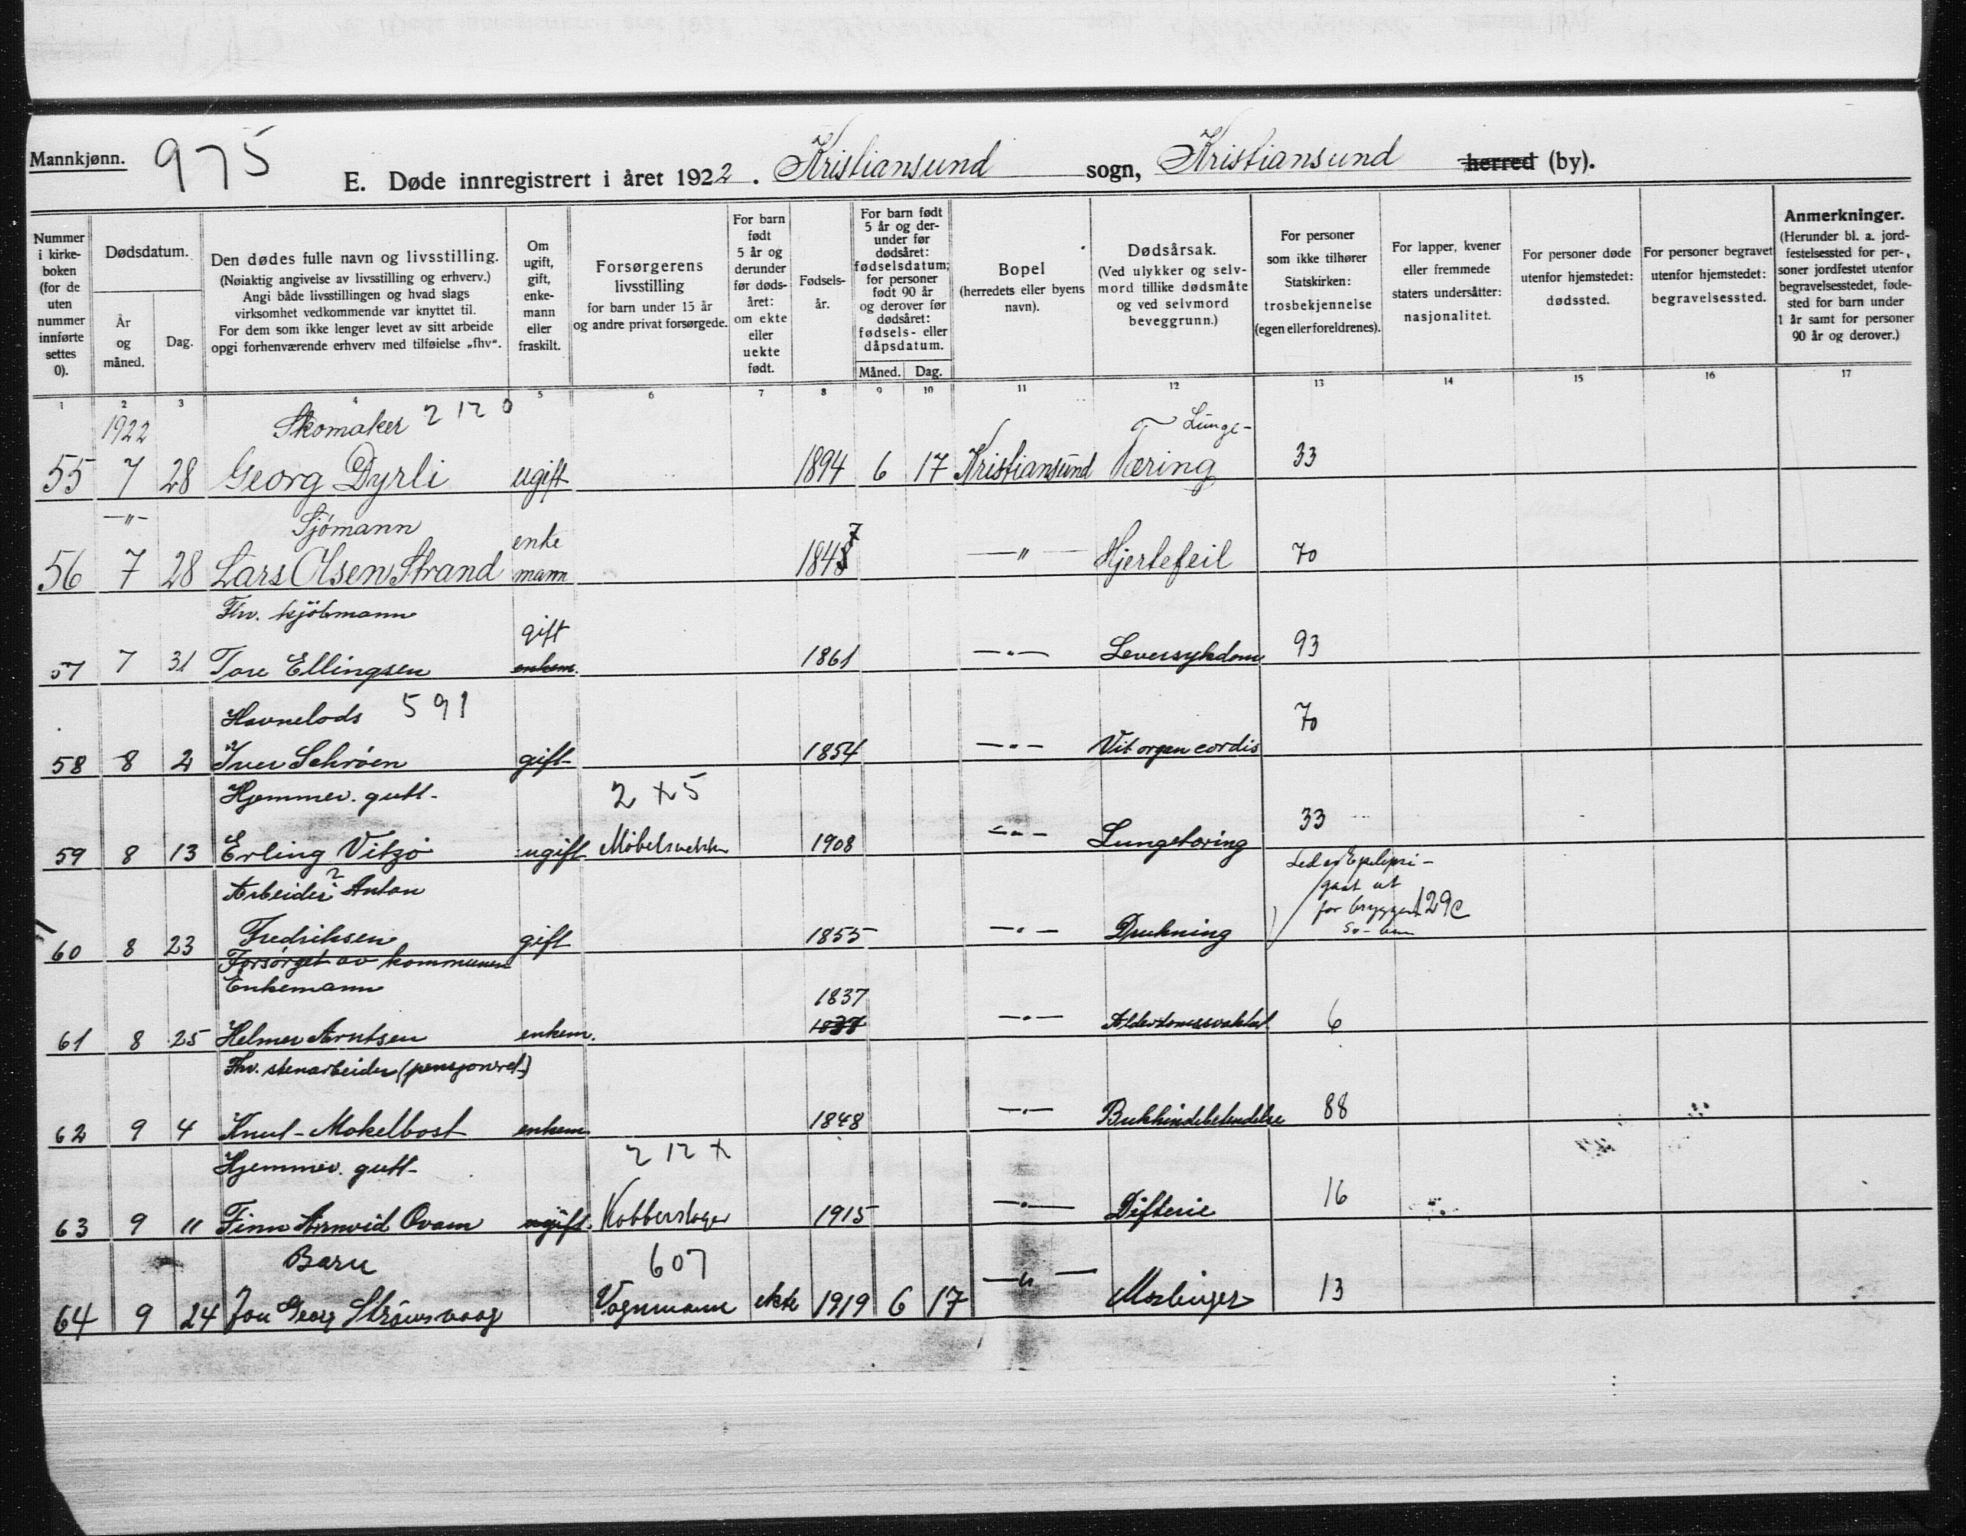 Mannkjønn. 975
E. Døde innregistrert i året 1922. Kristiansund sogn, Kristiansund herred (by).
Nummer i kirkeboken (for de uten nummer innførte settes 0).
Dødsdatum.
År og måned.
Dag.
Den dødes fulle navn og livsstilling.
(Nøiaktig angivelse av livsstilling og erhverv.)
Angi både livsstillingen og hvad slags
virksomhet vedkommende var knyttet til.
For dem som ikke lenger levet av sitt arbeide
opgi forhenværende erhverv med tilføielse „fhv“.
Om ugift, gift, enkemann eller fraskilt.
Forsørgerens livsstilling
for barn under 15 år
og andre privat forsørgede.
For barn født 5 år og derunder før dødsåret: om ekte eller uekte født.
Fødselsår.
For barn født 5 år og derunder før dødsåret: fødselsdatum; for personer født 90 år og derover før dødsåret: fødsels- eller dåpsdatum.
Måned. Dag.
Bopel
(herredets eller byens navn).
Dødsårsak.
(Ved ulykker og selvmord tillike dødsmåte og ved selvmord beveggrunn.)
For personer som ikke tilhører Statskirken: trosbekjennelse (egen eller foreldrenes).
For lapper, kvener eller fremmede staters undersåtter: nasjonalitet.
For personer døde utenfor hjemstedet: dødssted.
For personer begravet utenfor hjemstedet: begravelsessted.
Anmerkninger.
(Herunder bl. a. jordfestelsessted for per-, soner jordfestet utenfor begravelsesstedet, fødested for barn under 1 år samt for personer 90 år og derover.)
1 2 3 4 5 6 7 8 9 10 11 12 13 14 15 16 17
1922 Skomaker 2120 Lunge-
55 7 28 Georg Dyrli ugift 1894 6 17 Kristiansund Tæring 33
—"— Sjømann enke 7
56 7 28 Lars Olsen Strand mann 184 —"— Hjertefeil 70
Fhv. kjøbmann gift
57 7 31 Tore Ellingsen enkem. 1861 —"— Leversykdom 93
Havnelods 591 70
58 8 2 Iver Schrøen gift 1854 —"— Vit organ cordis
Hjemmev. gutt 2 x 5
59 8 13 Erling Vitzø ugift 1908 —"— Lungetæring 33
Arbeider Anton Led av Epilepsi –
gaat ut
for bryggen 129c
60 8 23 Fredriksen gift 1855 —"— Drukning
Forsørget av kommunen
Enkemann 1837
61 8 25 Helmer Arntsen enkem. 1838 —"— 6
Fhv. stenarbeider (pensjonert)
62 9 4 Knut Mokelbost enkem 1848 —"— 88
Hjemmev. gutt 212x
63 9 11 Finn Arnvid Ovam ugift. Kobberslager 1915 —"— Difterie 16
Barn 607
64 9 24 Jon Georg Strømsvaag Vognmann ekte 1919 6 17 —"— Meslinger 13